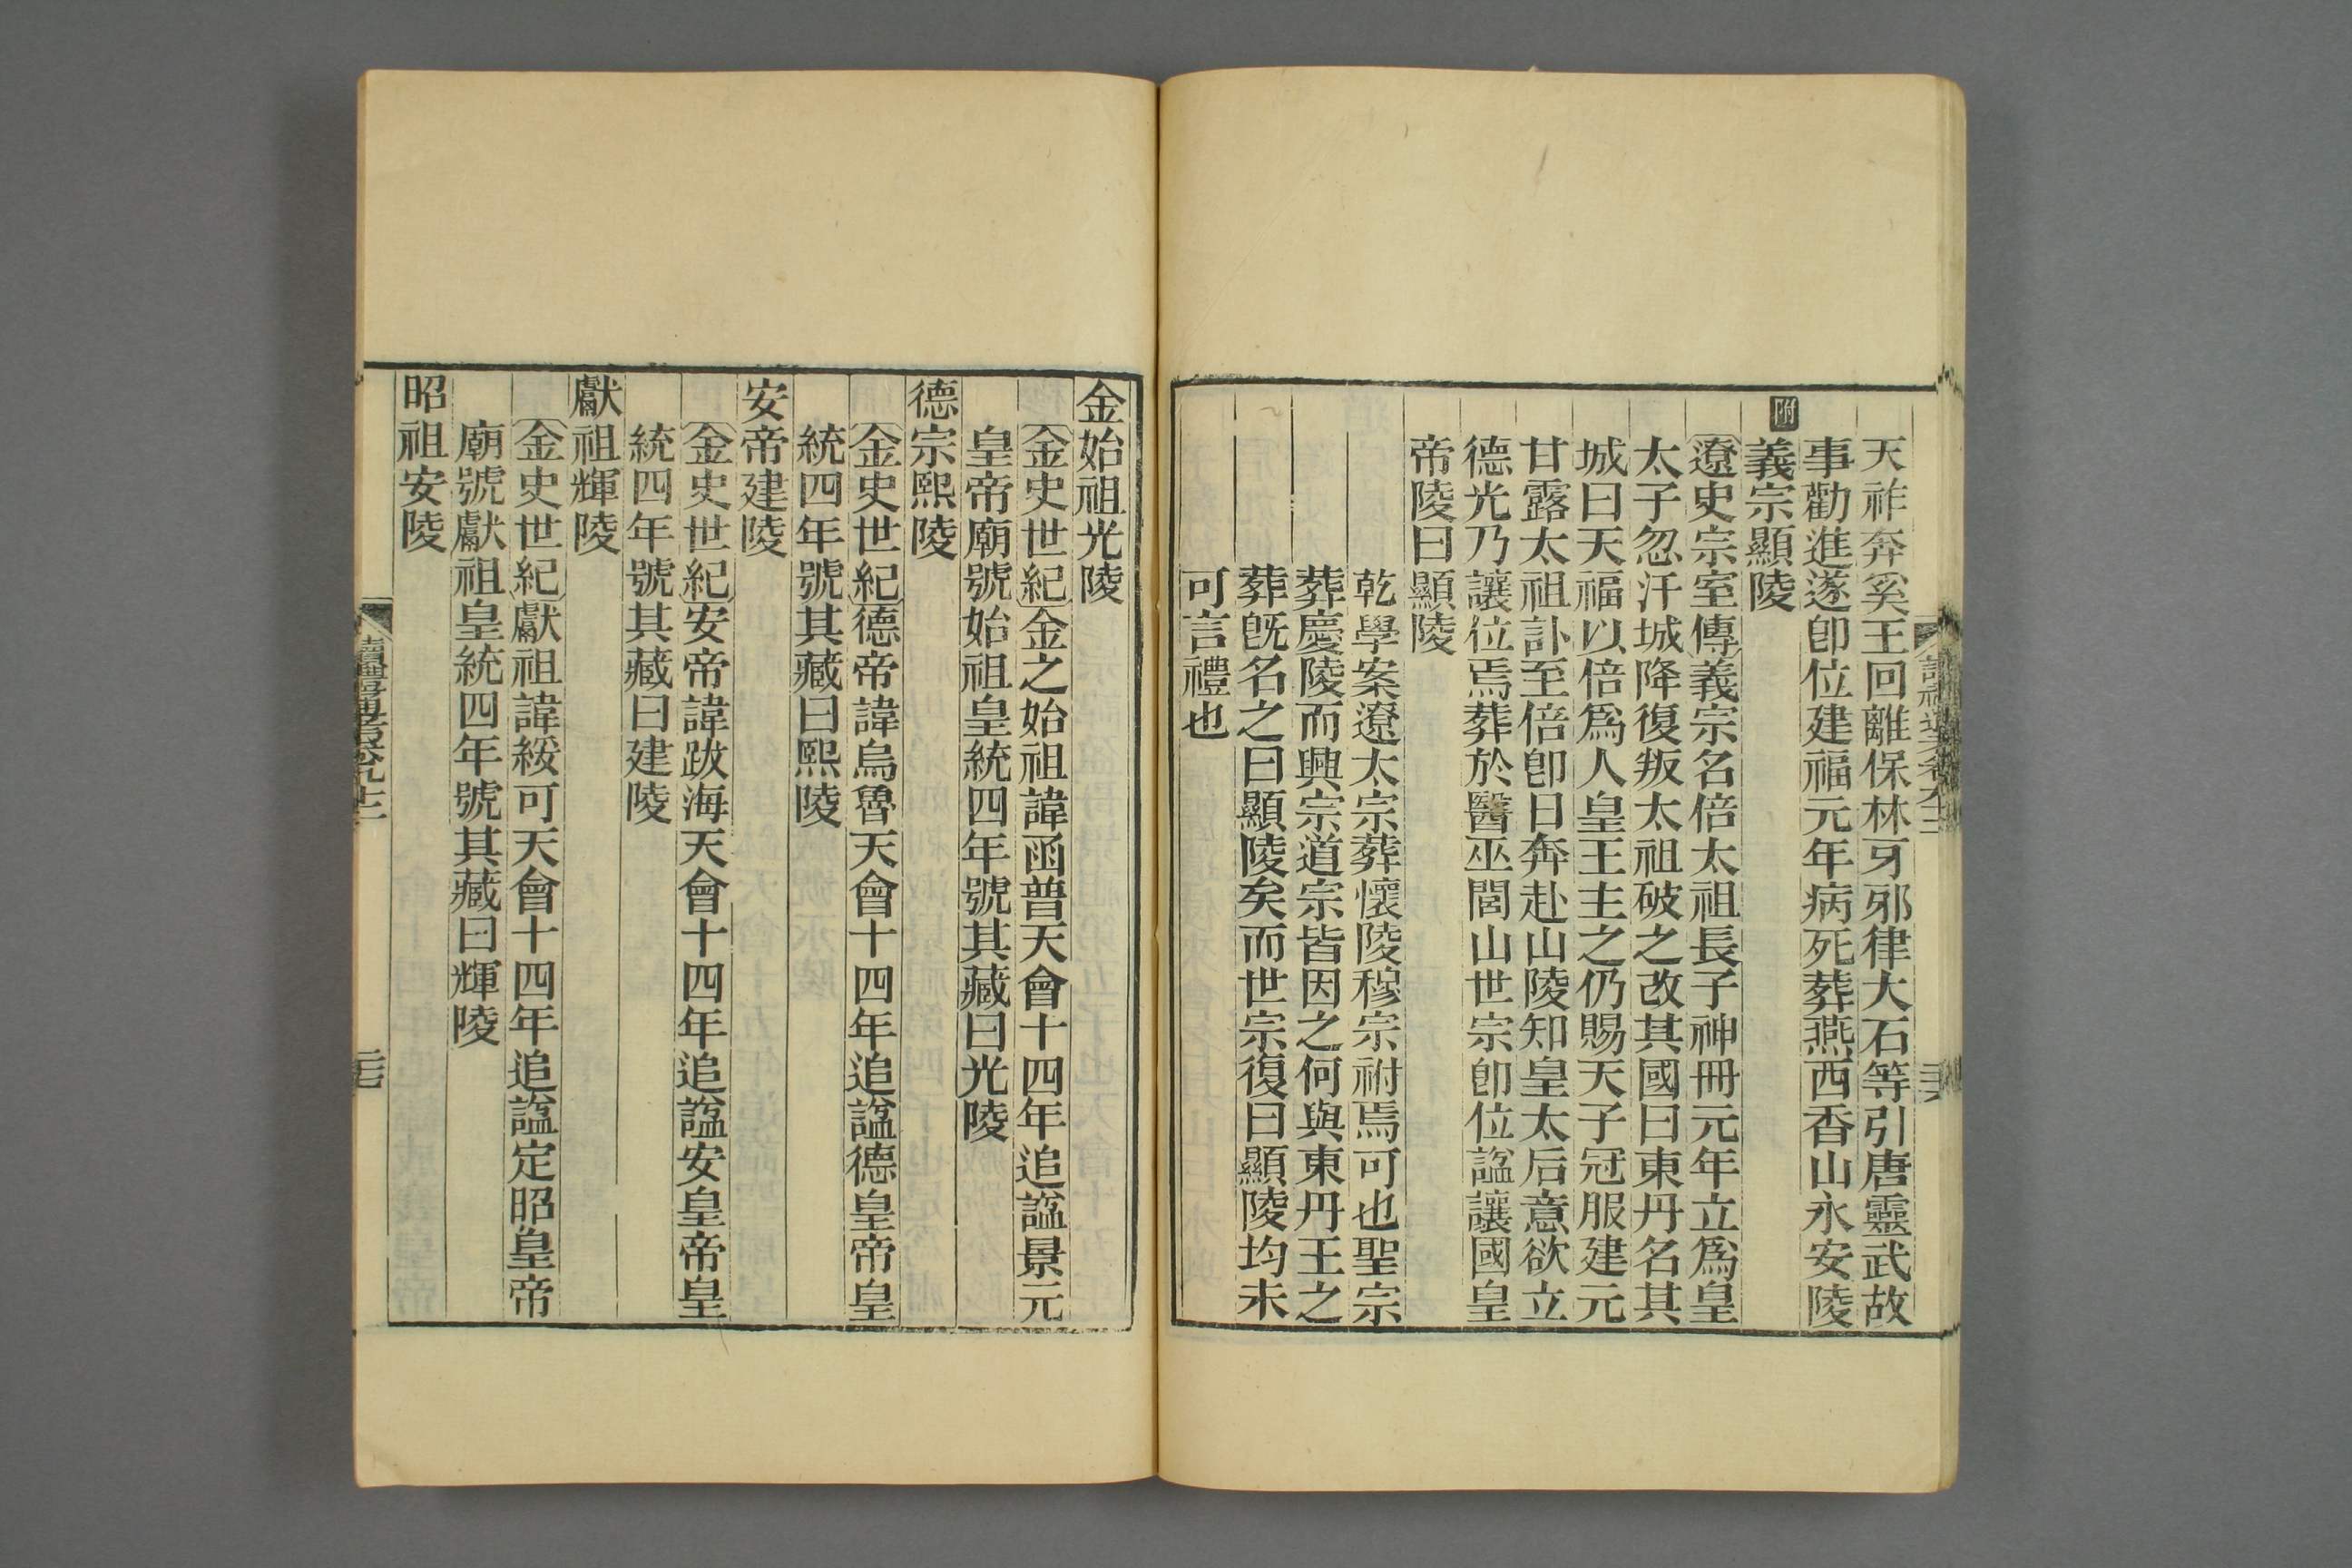 天祚奔奚王回離保林牙邪律大石等引唐靈武故
事勸進遂卽位建福元年病死葬燕西香山永安陵
附
義宗顯陵
遼史宗室傳義宗名倍太祖長子神冊元年立爲皇
太子忽汗城降復叛太祖破之改其國曰東丹名其
城曰天福以倍爲人皇王主之仍賜天子冠服建元
甘露太祖訃至倍卽日奔赴山陵知皇太后意欲立
德光乃讓位焉葬於醫巫閭山世宗卽位諡讓國皇
帝陵曰顯陵
乾學案遼太宗葬懷陵穆宗祔焉可也聖宗
葬慶陵而興宗道宗皆因之何與東丹王之
葬旣名之曰顯陵矣而世宗復曰顯陵均未
可言禮也
金始祖光陵
金史世紀金之始祖諱函普天會十四年追諡景元
皇帝廟號始祖皇統四年號其藏曰光陵
德宗熙陵
金史世紀德帝諱烏魯天會十四年追諡德皇帝皇
統四年號其藏曰熙陵
安帝建陵
金史世紀安帝諱跋海天會十四年追諡安皇帝皇
統四年號其藏曰建陵
獻祖輝陵
金史世紀獻祖諱綏可天會十四年追諡定昭皇帝
廟號獻祖皇統四年號其藏曰輝陵
昭祖安陵